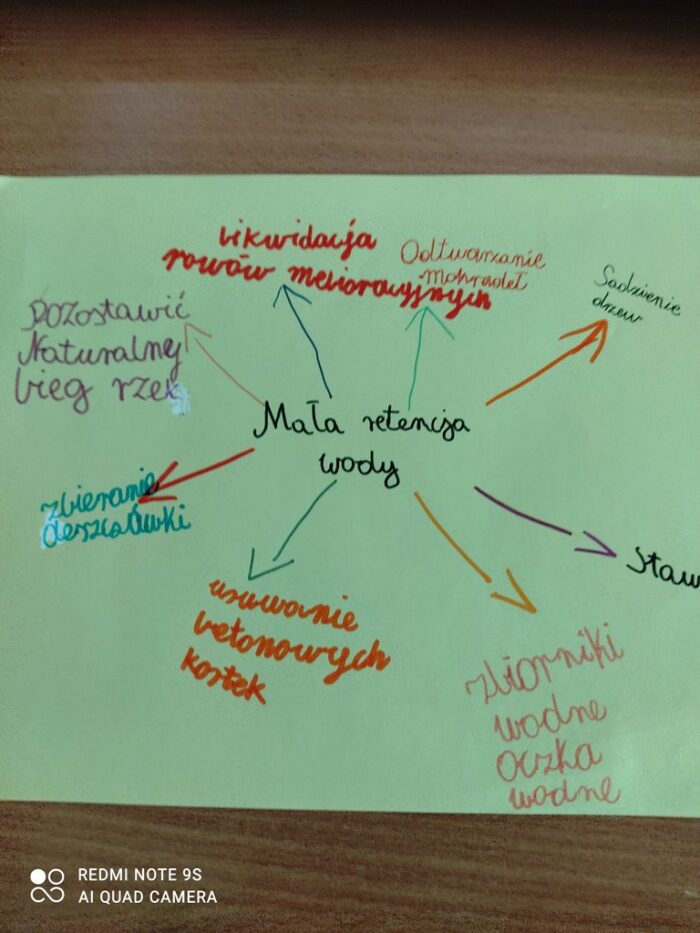 Likwidacja
rowów melioracyjnych
Odtwarzanie
Mokradeł
Sadzienie
drzew
Pozostawić
Naturalny
bieg rzek
Mała retencja
wody
zbieranie
deszczówki
Staw
usuwanie
betonowych
kostek
zbiorniki
wodne
oczka
wodne
REDMI NOTE 9S
AI QUAD CAMERA